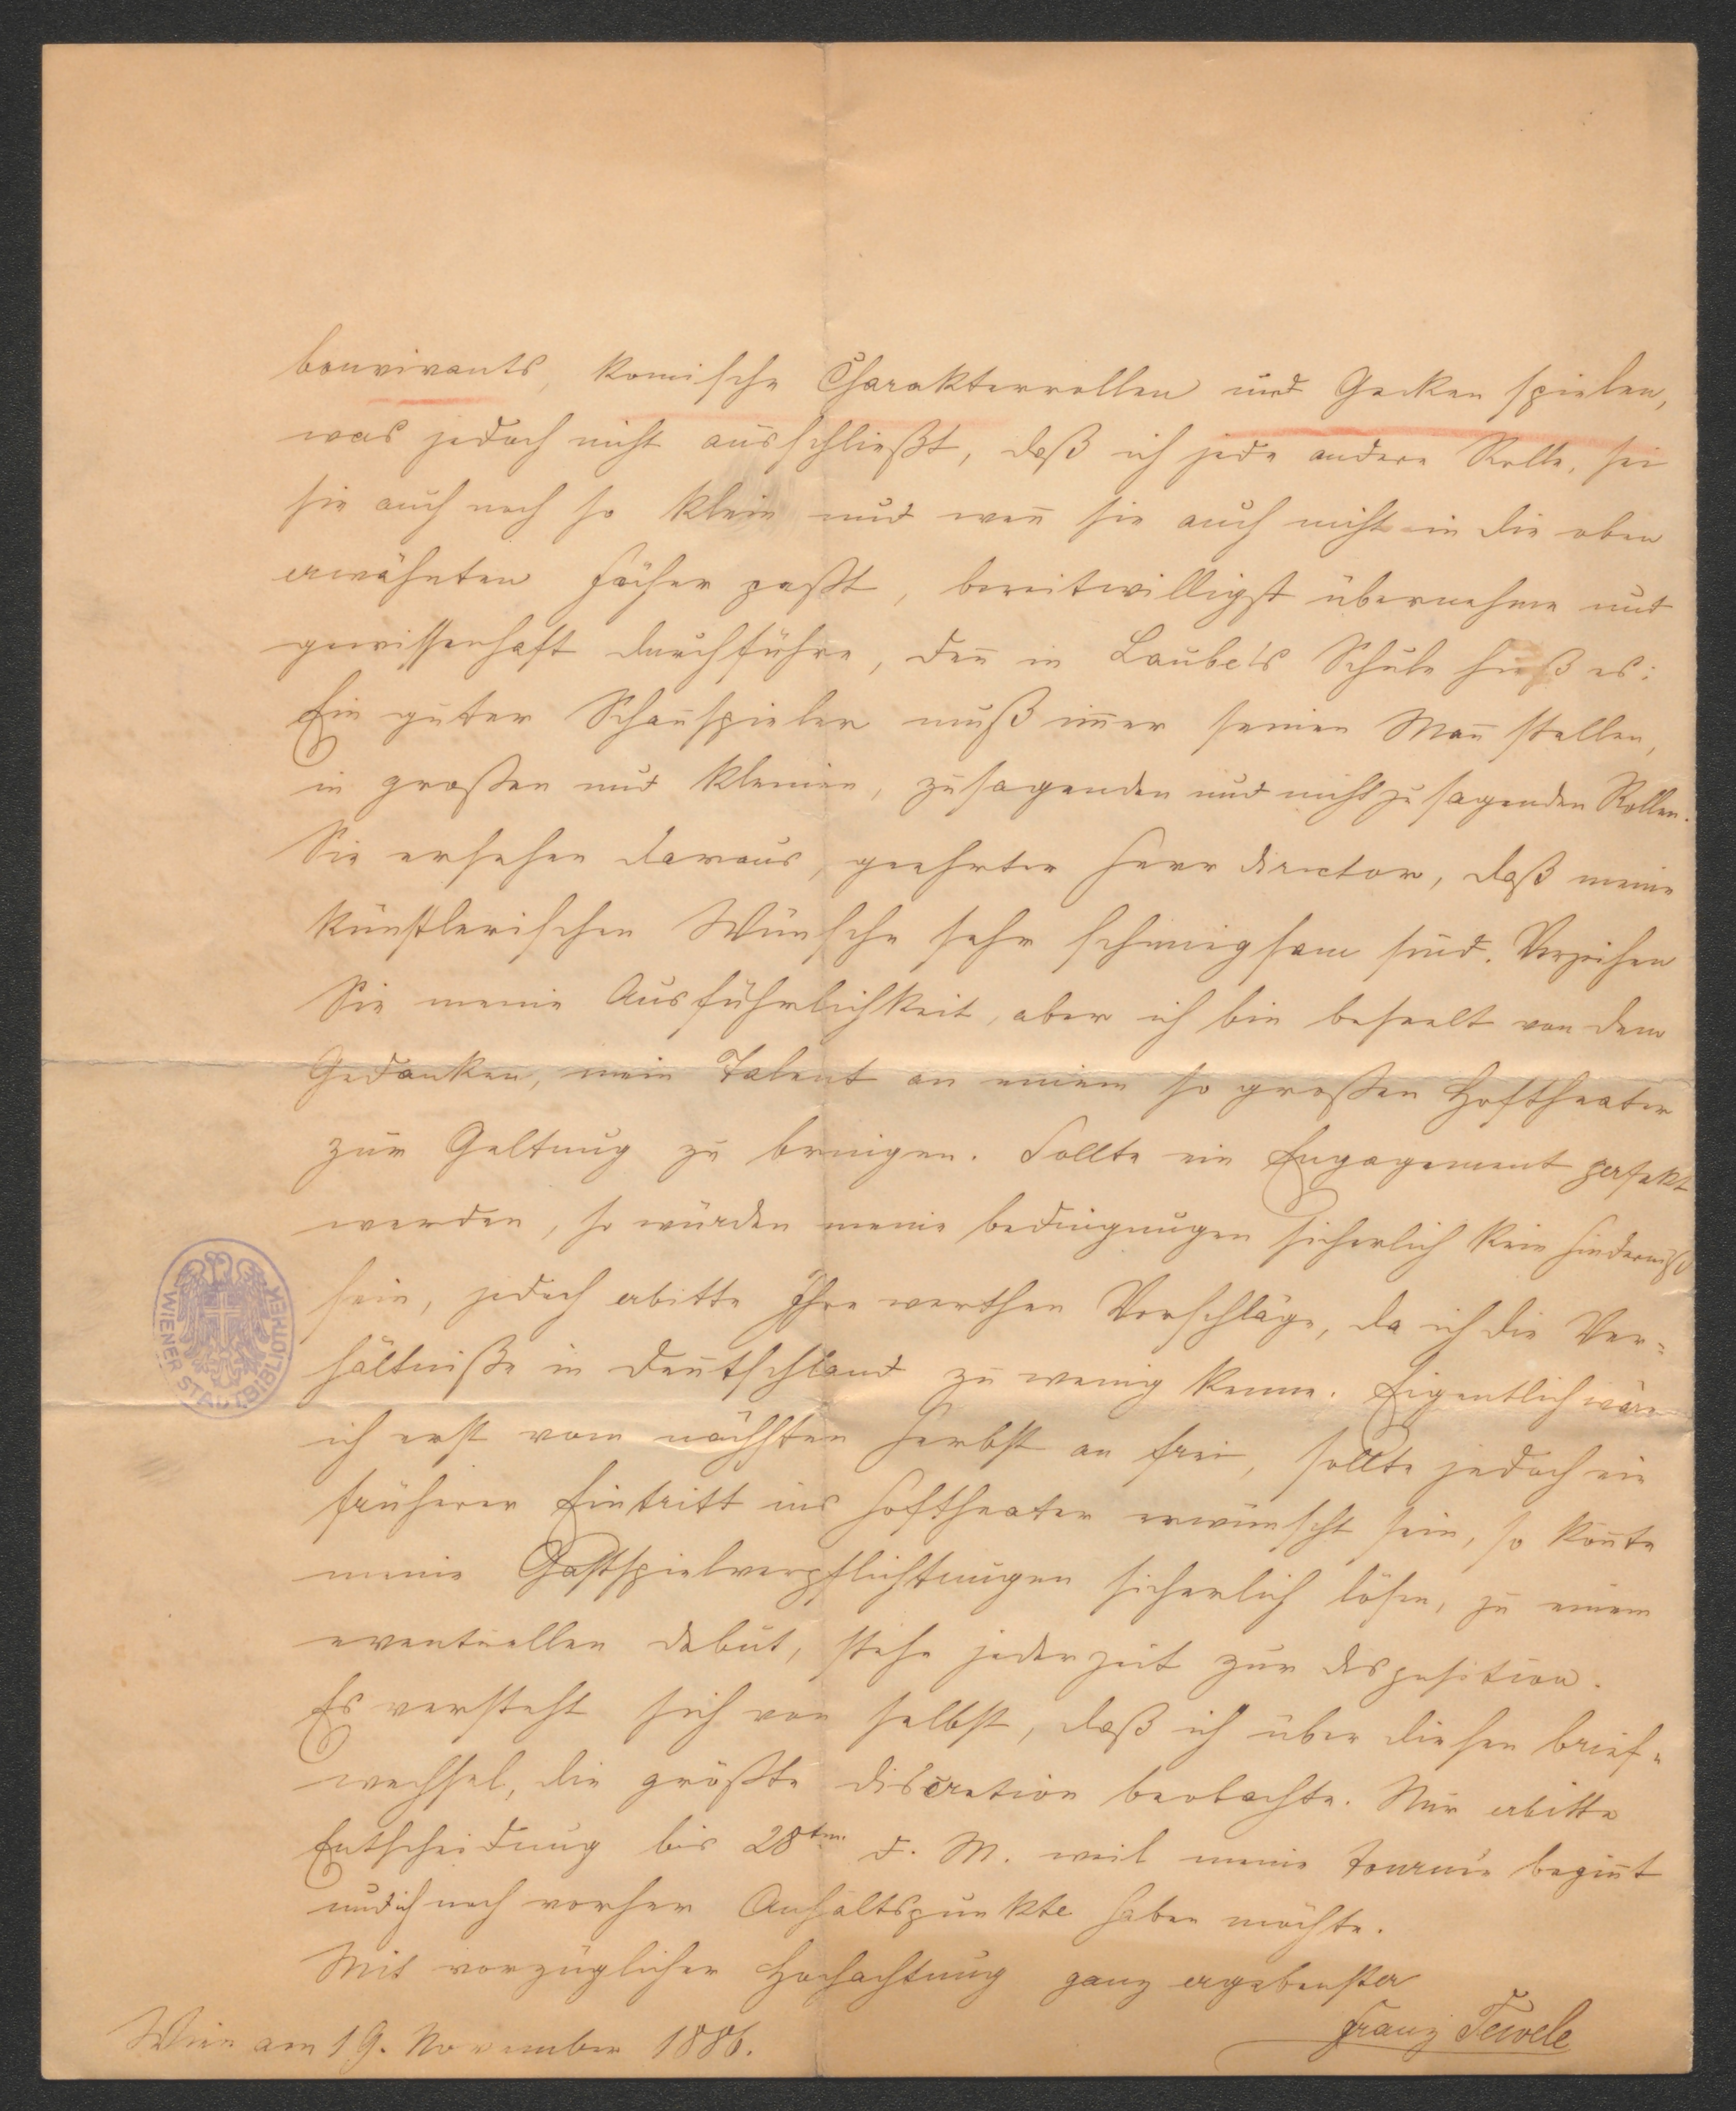 bonvivants, komische Charakterrollen und Gecken spielen,
was jedoch nicht ausschließt, daß ich jede andere Rolle, sei
sie auch noch so klein und wen̄ sie auch nicht in die oben
erwähnten Fächer paßt, bereitwilligst übernehme und
gewissenhaft durchführe, den̄ in Laube's Schule hieß es:
Ein guter Schauspieler muß im̄er seinen Man̄ stellen,
in großen und kleinen, zusagenden und nicht zusagenden Rollen.
Sie ersehen daraus, geehrter Herr Director, daß meine
künstlerischen Wünsche sehr schmiegsam sind. Verzeihen
Sie meine Ausführlichkeit, aber ich bin beseelt von dem
Gedanken, mein Talent an einem so großen Hoftheater
zur Geltung zu bringen. Sollte ein Engagement perfekt
werden, so würden meine bedingungen sicherlich kein Hinderniß
sein, jedoch erbitte Ihre werthen Vorschläge, da ich die Ver=
hältniße in Deutschland zu wenig kenne. Eigentlich wäre
ich erst vom nächsten Herbst an frei, sollte jedoch ein
früherer Eintritt ins Hoftheater erwünscht sein, so kön̄te
meine Gastspielverpflichtungen sicherlich lösen, zu einem
eventuellen debut, stehe jederzeit zur disposition.
Es versteht sich von selbst, daß ich über diesen brief=
wechsel, die größte discretion beobachte. Nur erbitte
Entscheidung bis 28ten d. M. weil meine tournée begin̄t
und ich noch vorher Anhaltspunkte haben möchte.
Mit vorzüglicher Hochachtung ganz ergebenster
Franz Tewele
Wien am 19. November 1886.
WIENER STADTBIBLIOTHEK